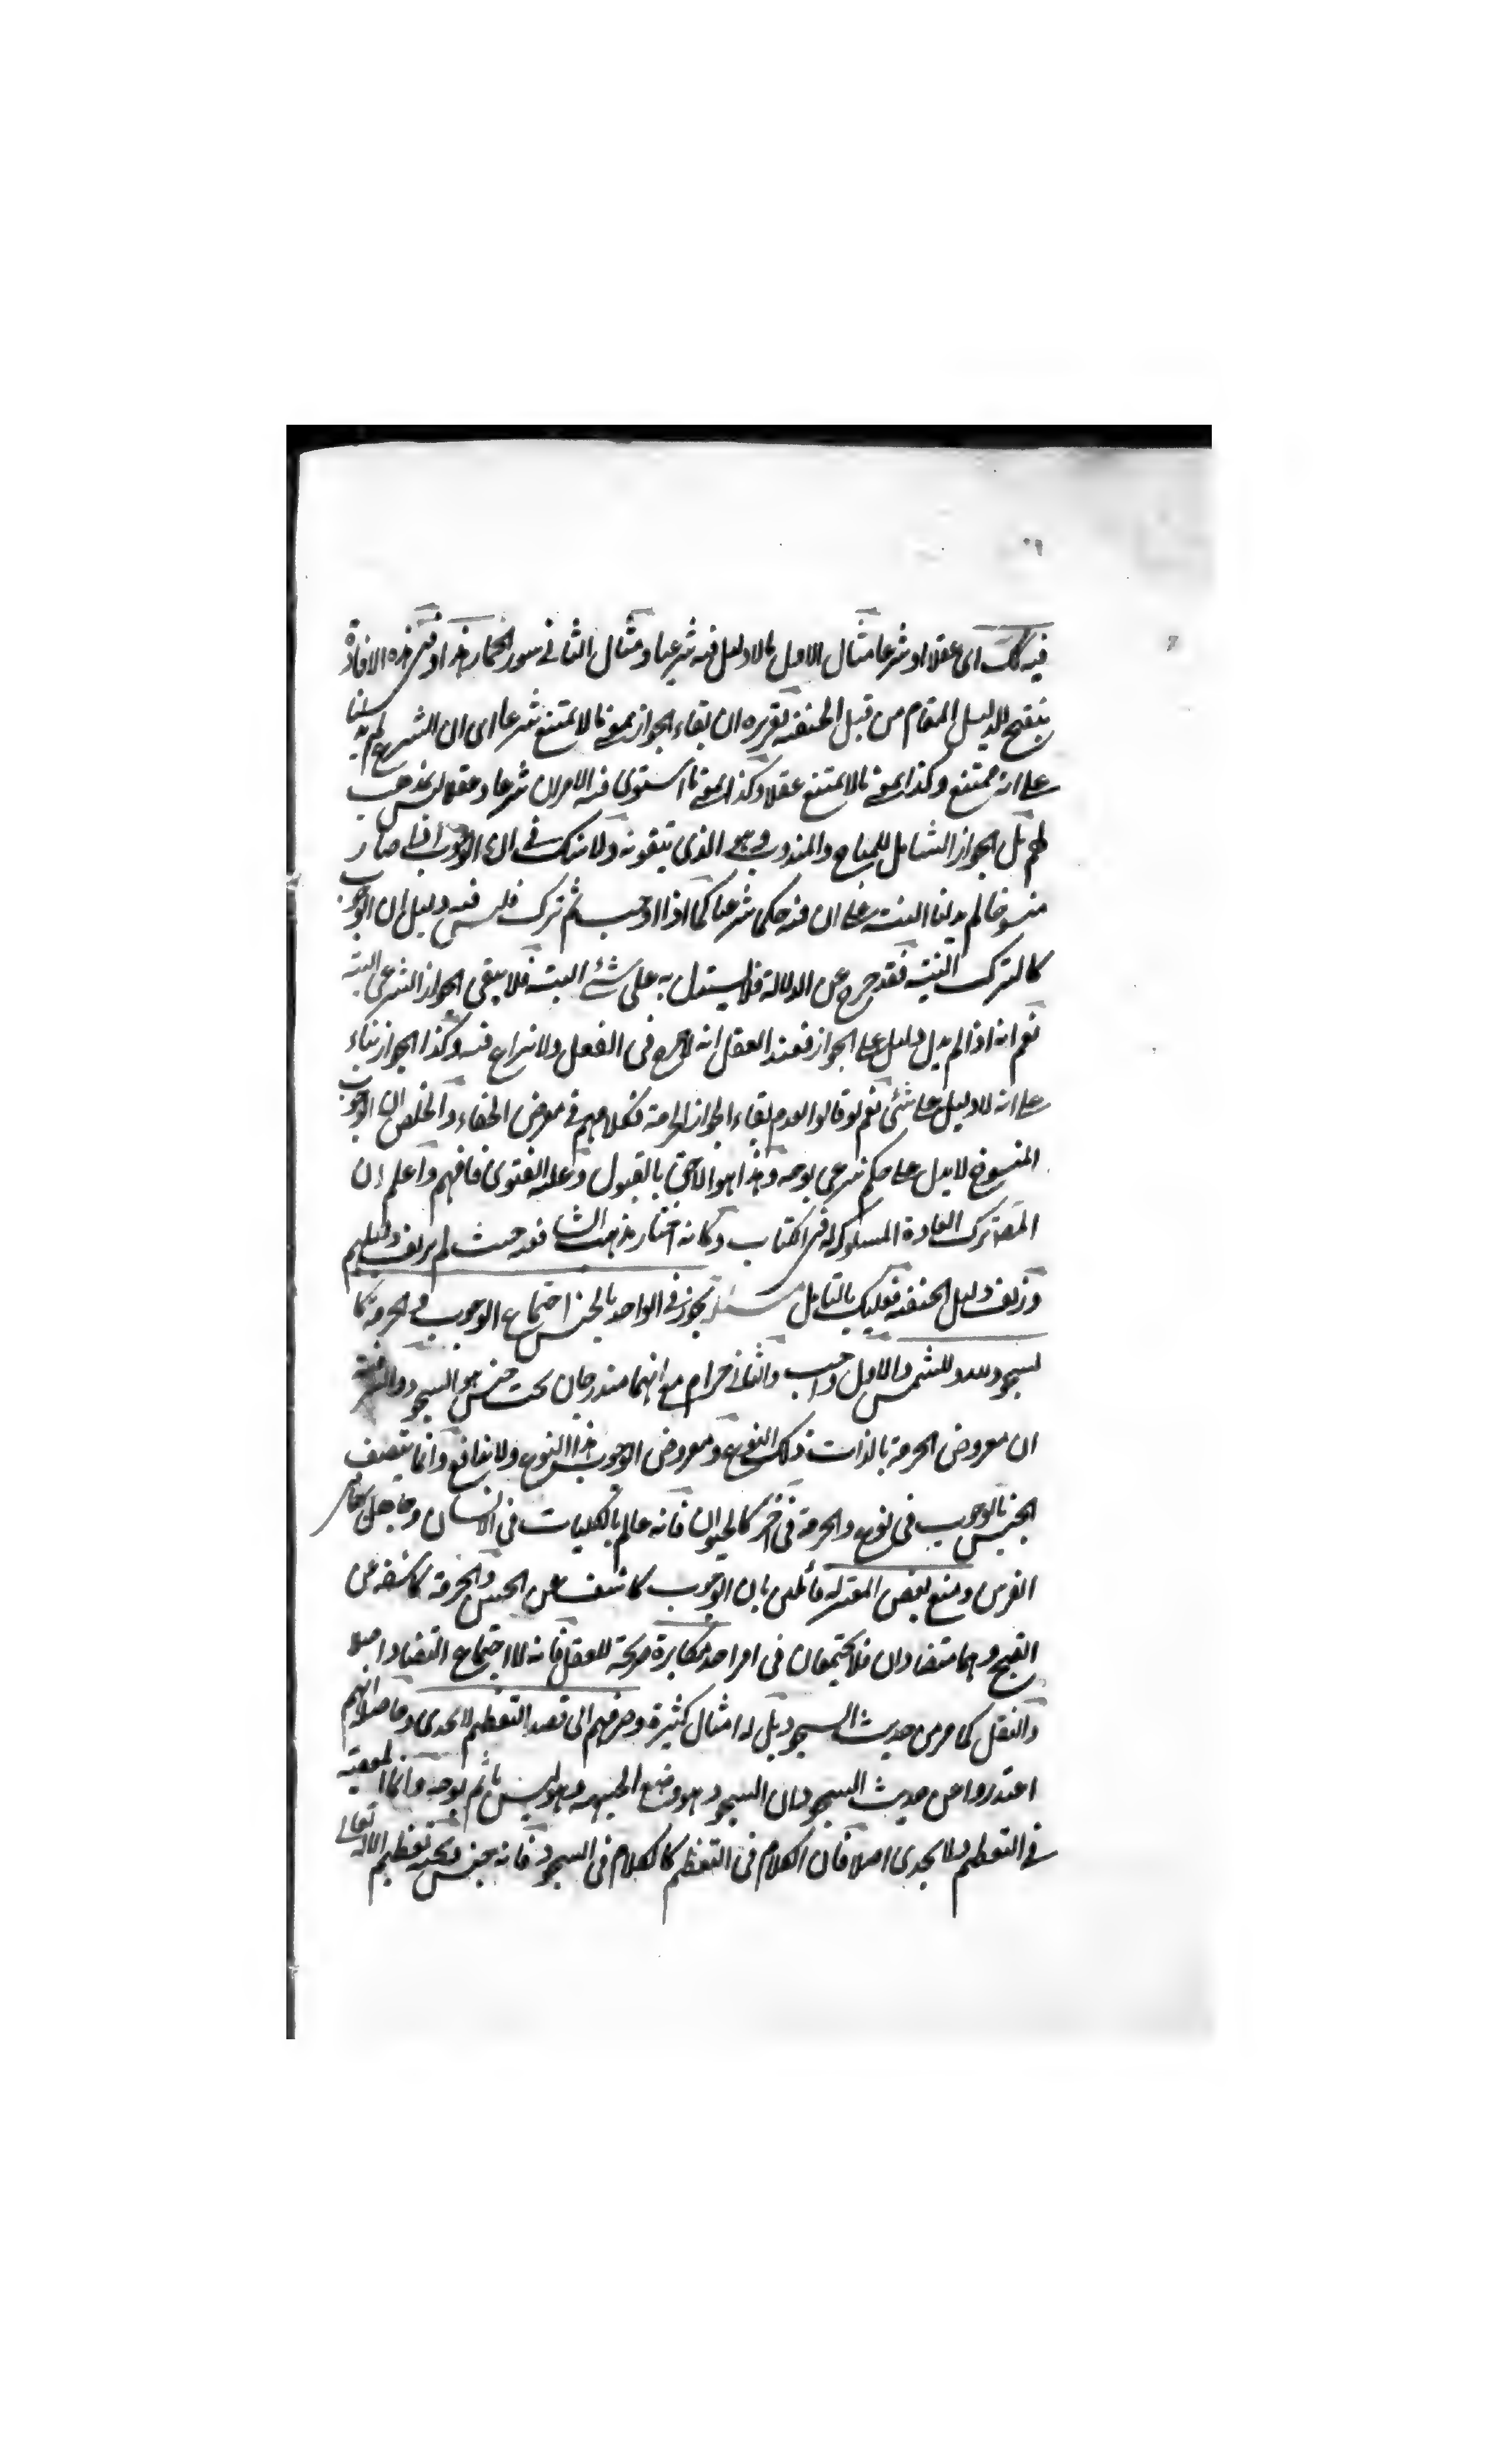 فيه كك اى عقلا او شرعا مثال الاول ما لا دليل فيه شرعيا و مثال الثانى سور الحمار هذا و فى هذه الافادة
ينقح الدليل المقام من قبل الحنفية تقريره ان بقاء الجواز بمعنى ما لا يمتنع شرعا اى ان الشرع لم
على انه ممتنع وكذا بمعنى ما لا يمتنع عقلا وكذا بمعنى ما استوى فيه الامران شرعا وعقلا ليس بمذهب
لهم بل الجواز الشامل للمباح والمندوب وهو الذى ولا شك فى ان الوجوب اذا صار
منسوخا لم يدلنا البتة على ان فيه حكما شرعيا كما اذا اوجب ثم ترك فليس فيه دليل ان الوجوب
كالترك البتة فقد خرج عن الدلالة فلا يستدل به على شئ البتة فلا يبقى الجواز الشرعى البتة
نعم انه اذا لم يدل دليل على الجواز فعند العقل انه لا حرج فى الفعل ولا نزاع فيه وكذا الجواز بناء
على انه لا دليل على شئ نعم لو قالوا لعدم بقاء الجواز الحرمة فكلامهم فى معرض الخفاء والملخص ان الوجوب
المنسوخ لا يدل على حكم شرعى بوجه وهذا هو الاحق بالقبول وعليه الفتوى فافهم واعلم ان
المصنف ترك العادة المسلوكة له فى الكتاب وكانه اختار مذهب الشافعية حيث لم يزيف دليلهم
وزيف دليل الحنفية فعليك بالتامل مسئلة يجوز فى الواحد بالجنس اجتماع الوجوب والحرمة كما
لسجود لله وللشمس والاول واجب والثانى حرام مع انهما مندرجان تحت جنس هو السجود
ان معروض الحرمة بالذات ذلك النوع ومعروض الوجوب هذا النوع ولا تدافع وانما يتصف
الجنس بالوجوب فى نوع والحرمة فى آخر كالحيوان فانه عالم بالكليات فى الانسان وجاهل بها فى
الفرس ومنع بعض المعتزلة قائلين بان الوجوب كاشف عن الحسن والحرمة كاشفة عن
القبح وهما متضادان فلا يجتمعان فى امر واحد مكابرة صريحة للعقل فانه لا اجتماع التضاد اصلا
والنقل كما مر من حديث السجود بل له امثال كثيرة وصرفهم الى قصد التعظيم لا يجدى وحاصله انهم
اعتذروا عن حديث السجود بان السجود هو وضع الجبهة وهو ليس باثم بوجه وانما المعصية
فى التعظيم ولا يجدى اصلا فان الكلام فى التعظيم كالكلام فى السجود فانه جنس تحته تعظيم الاله تعالى